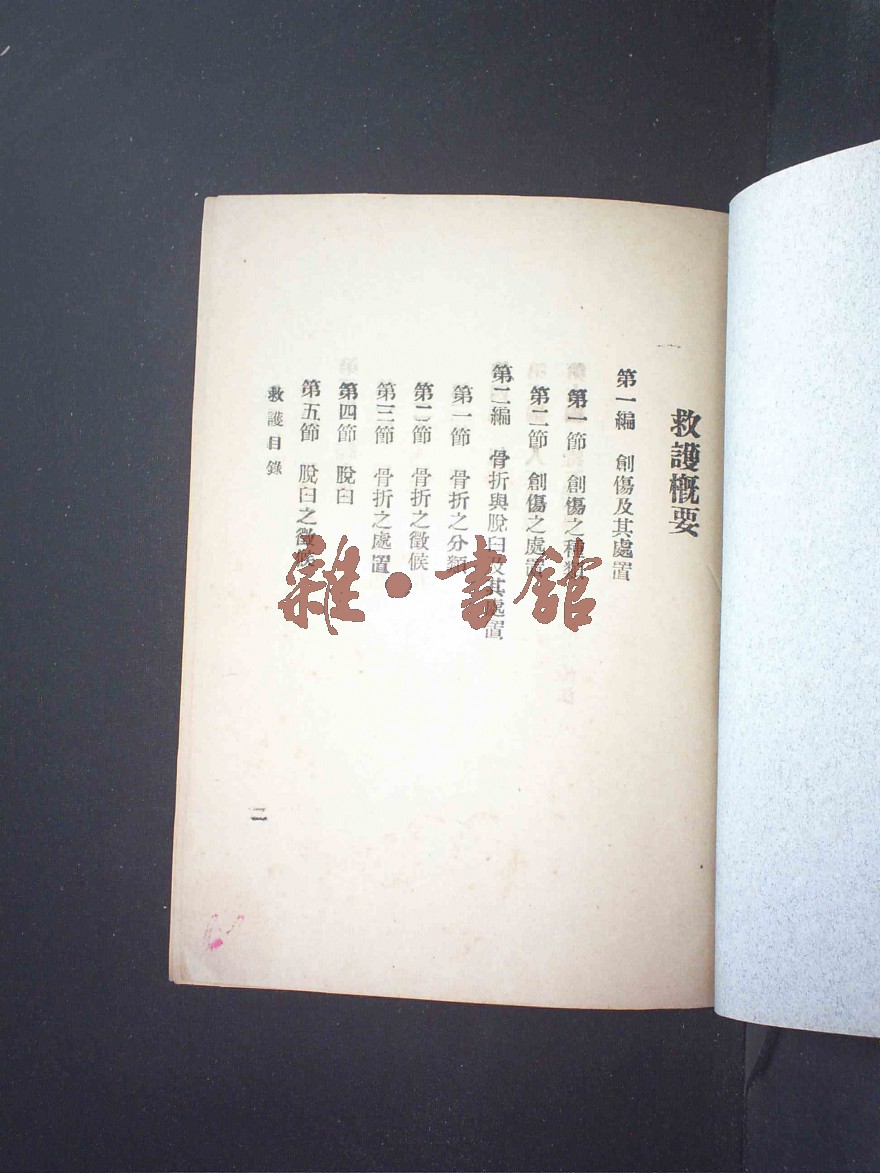 救護概要
第一編　創傷及其處置
第一節　創傷之種類
第二節　創傷之處置
第二編　骨折與脫臼及其處置
第一節　骨折之分類
第二節　骨折之徵候
第三節　骨折之處置
第四節　脫臼
第五節　脫臼之徵候
救護目錄
二
雜·書館